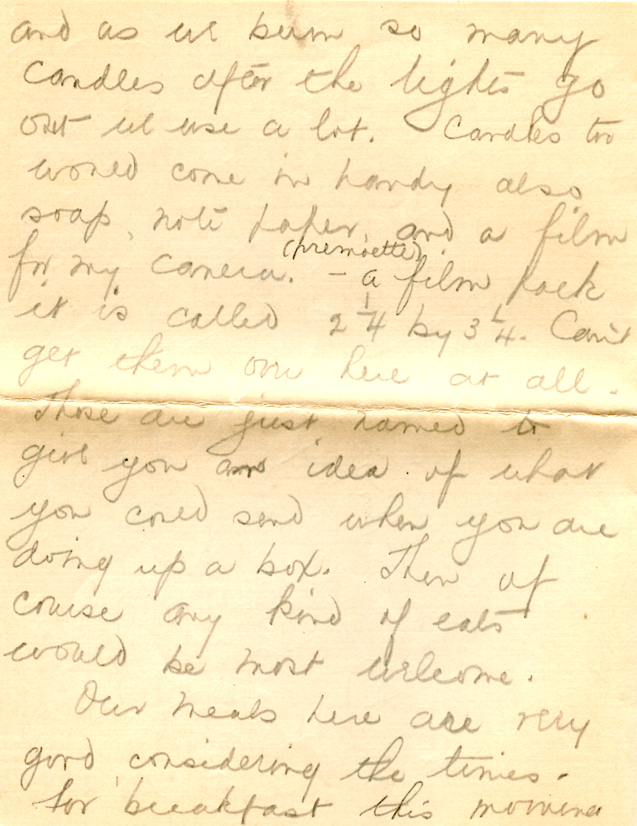 and as we burn so many
candles after the lights go
out we use a lot. Candles too
would come in handy also
soap, note paper, and a film
for my camera. (premoette) – a film pack
it is called 2 1/4 by 3 1/4. Can't
get them over here at all.
These are just named to
give you an idea of what
you could send when you are
doing up a box. Then of
course any kind of eats
would be most welcome.
Our meals here are very
good considering the times.
for breakfast this morning